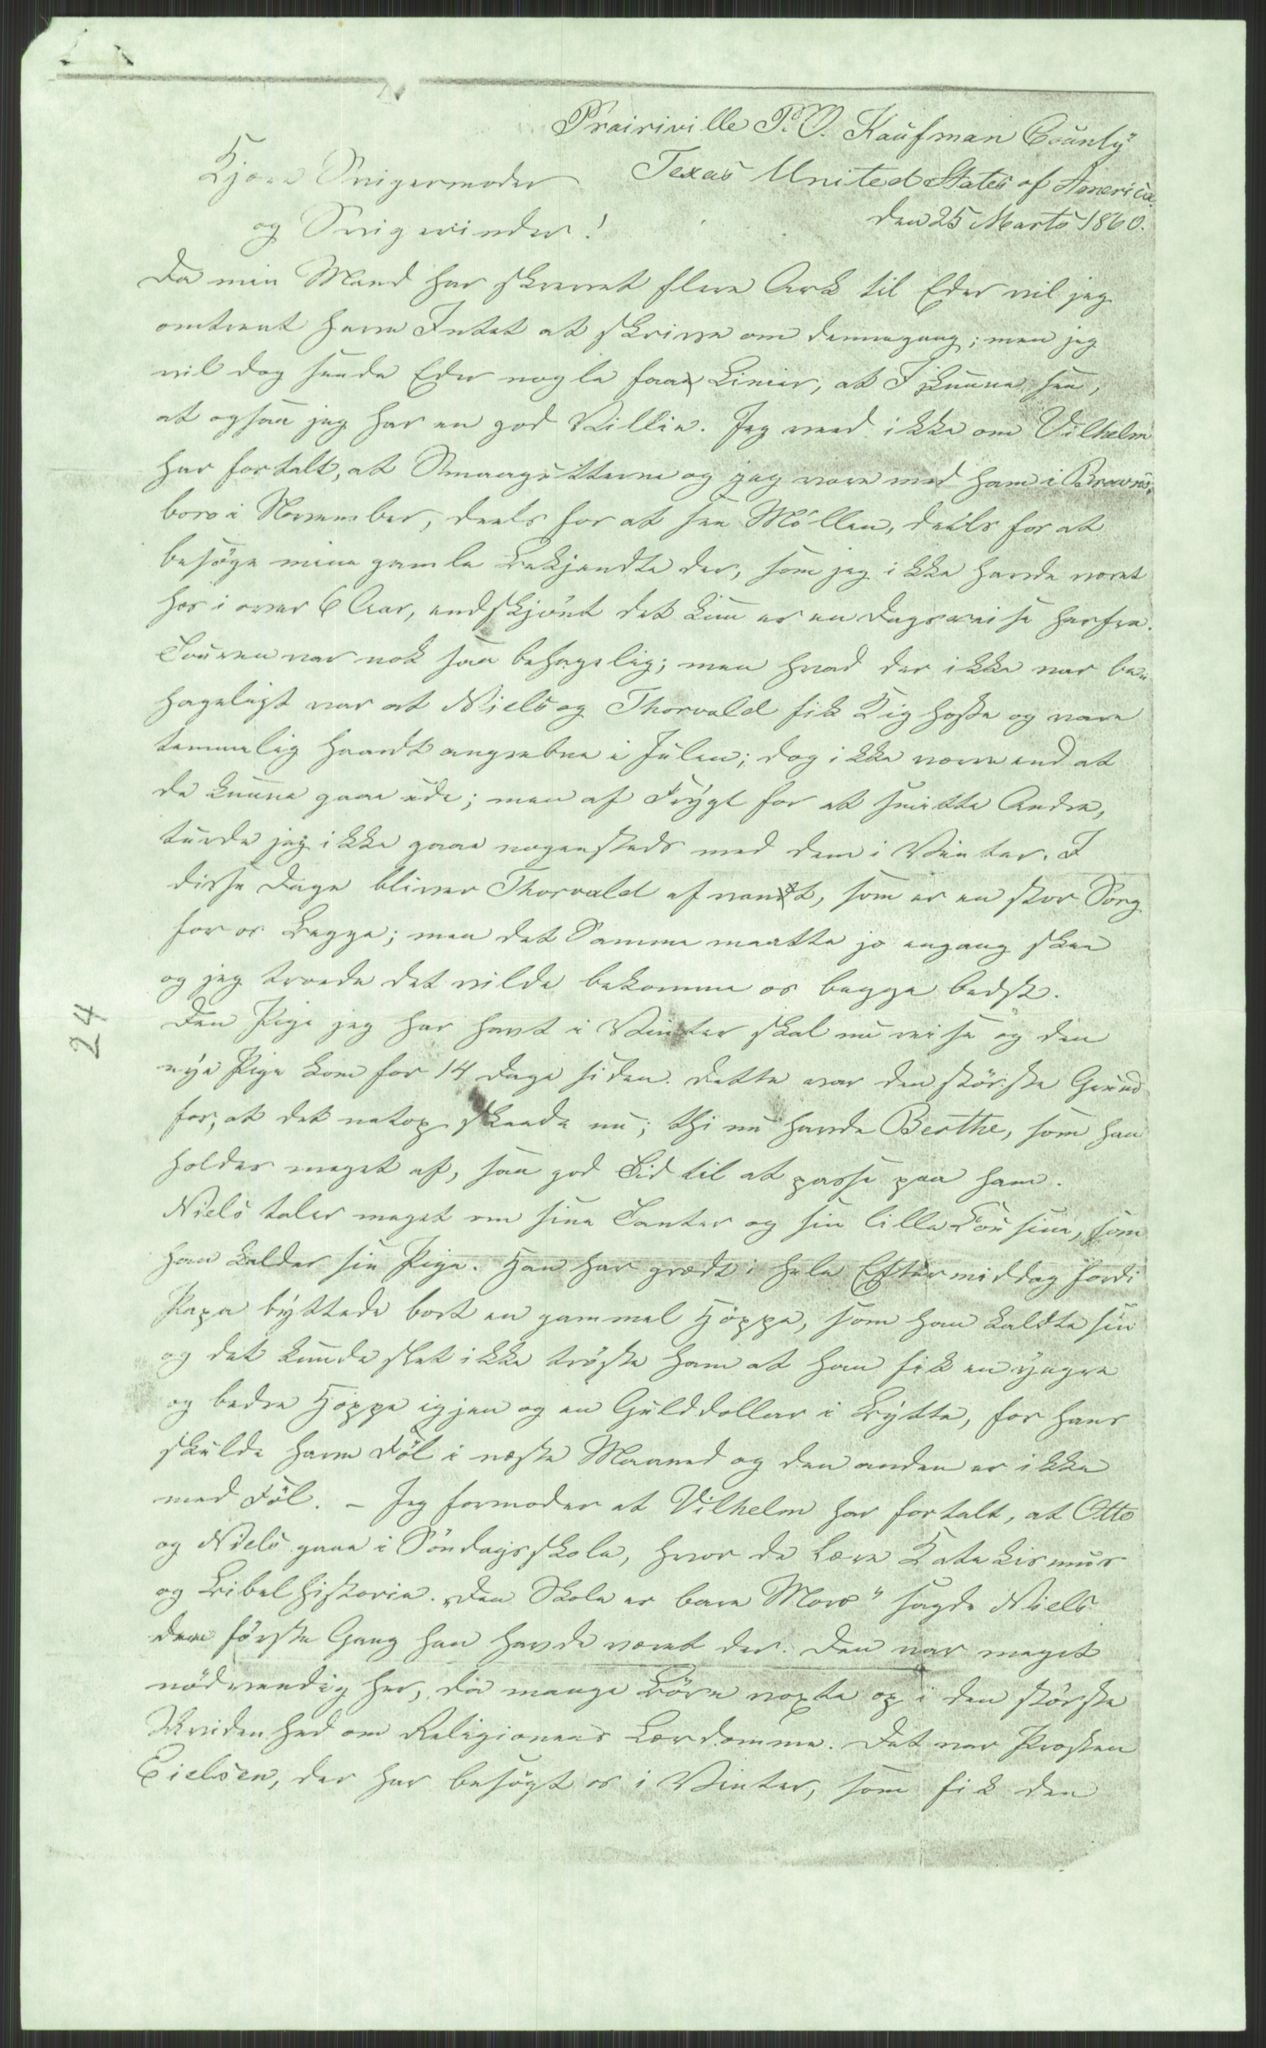 Prairiville P.O. Kaufman County
Texas United States of America.
den 25 Marts 1860.
Kjære Svigermoder
og Svigerinder!
Da min Mand har skrevet flere Ark til Eder vil jeg
omtrent have Intet at skrive om dennegang; men jeg
vil dog sende Eder nogle faae Linier, at I kunne see,
at ogsaa jeg har en god Villie. Jeg veed ikke om Vilhelm
har fortalt, at Smaagutterne og jeg vare med ham i Browns,
boro i November, deels for at see Möllen, deels for at
besöge mine gamle Bekjendte der, som jeg ikke havde været
hos i over 6 Aar, endskjönt det kun er en Dagsreise herfra.
Touren var nok saa behagelig; men hvad der ikke var be-
hageligt var at Niels og Thorvald fik Kighoste og vare
temmelig haardt angrebne i Julen; dog ikke værre end at
de kunne gaae ude; men af Frygt for at smitte Andre,
turde jeg ikke gaae nogensteds med dem i Vinter. I
disse Dage bliver Thorvald afvandt, som er en stor Sorg
for os Begge; men det Samme maatte jo engang skee
og jeg troede det vilde bekomme os begge bedst.
Den Pige jeg har havt i Vinter skal nu reise og den
nye Pige kom for 14 Dage siden. Dette var den störste Grund
for, at det netop skeede nu; thi nu havde Berthe, som han
holder meget af, saa god Tid til at passe paa ham.
Niels taler meget om sine Tanter og sin lille Cousine, som
han kalder sin Pige. Han har grædt i hele Eftermiddag fordi
Papa byttede bort en gammel Hoppe, som han kaldte sin
og det kunde slet ikke tröste ham at han fik en yngre
og bedre Hoppe igjen og en Gulddollar i Bytte, for hans
skulde have Föl i næste Maaned og den anden er ikke
med Föl. – Jeg formoder at Vilhelm har fortalt, at Otto
og Niels gaae i Söndagsskole, hvor de lære Katekismus
og Bibelhistorie. "Den Skole er bare Moro" sagde Niels
den förste Gang han havde været der. Den var meget
nödvendig her, da mange Börn voxte op i den störste
Uvidenhed om Religionens Lærdomme. Det var Præsten
Eielsen, der har besögt os i Vinter, som fik den
24